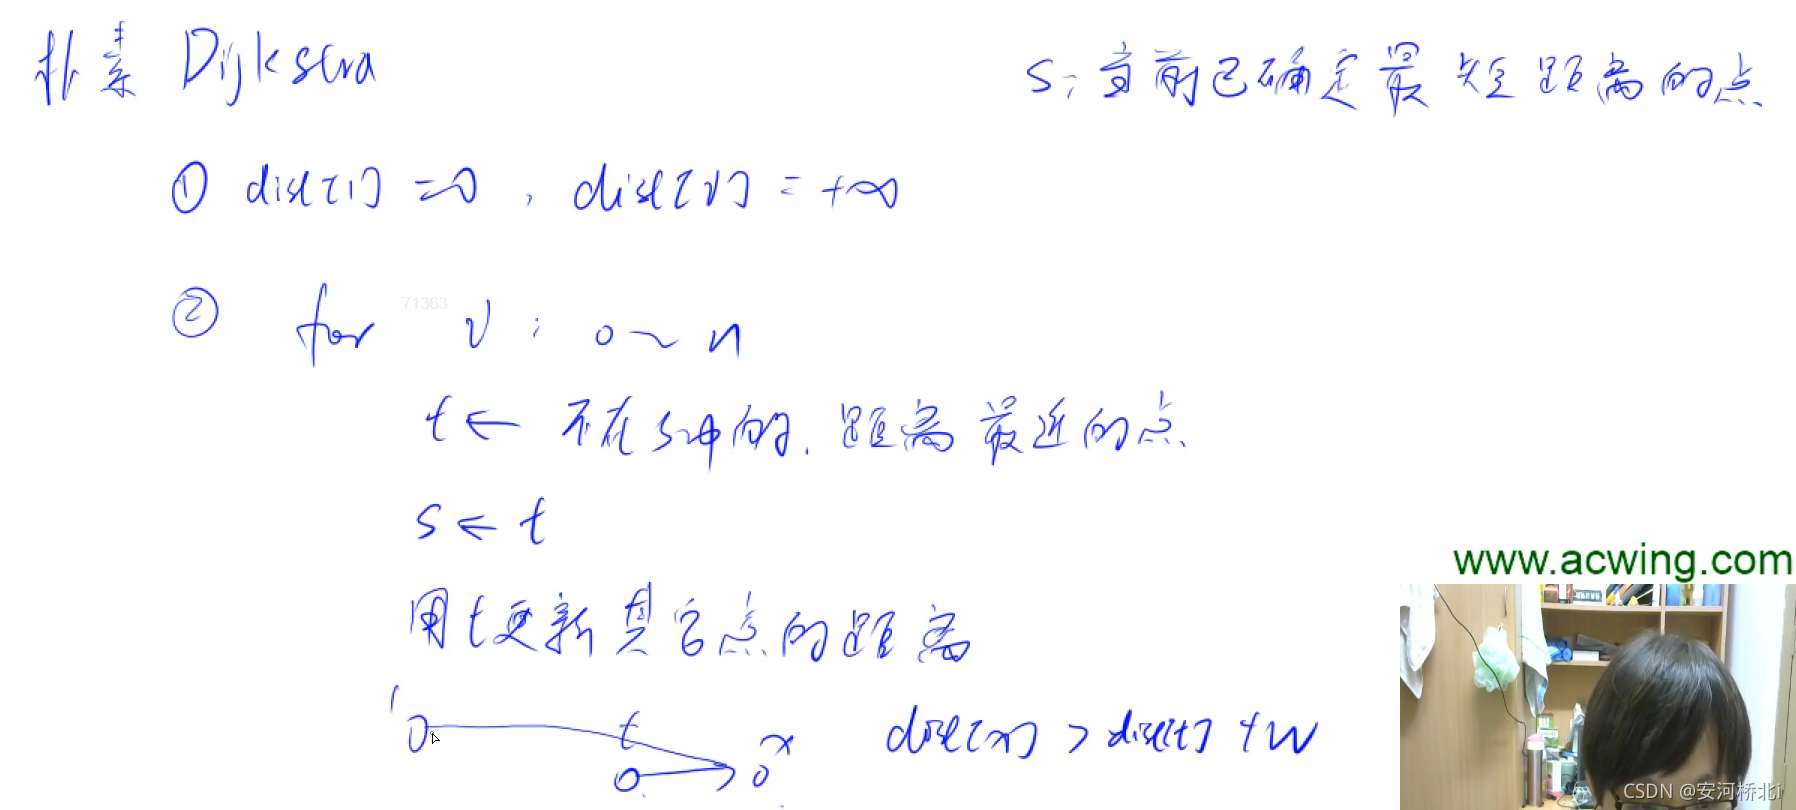 朴素 Dijkstra
s: 当前已确定最短距离的点
① dist[1] = 0, dist[v] = +∞
② for v: 0 ~ n
71363
t ← 不在s中的, 距离最近的点
s ← t
用t更新其它点的距离
1 t x
dist[x] > dist[t] + w
www.acwing.com
CSDN @安河桥北i